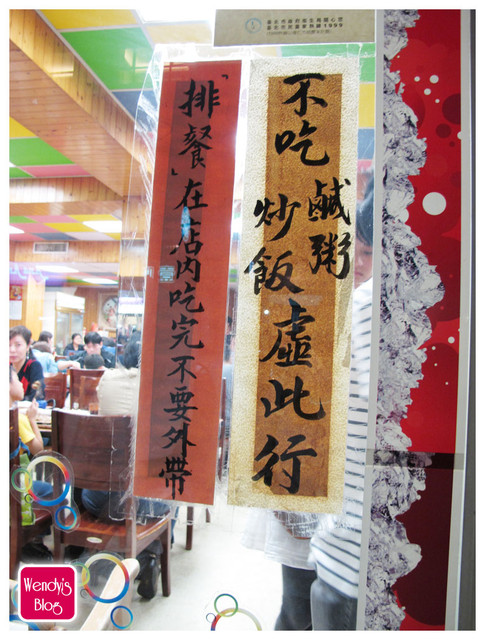 不吃鹹粥炒飯虛此行
「排餐」在店內吃完不要外帶
Wendy's
Blog